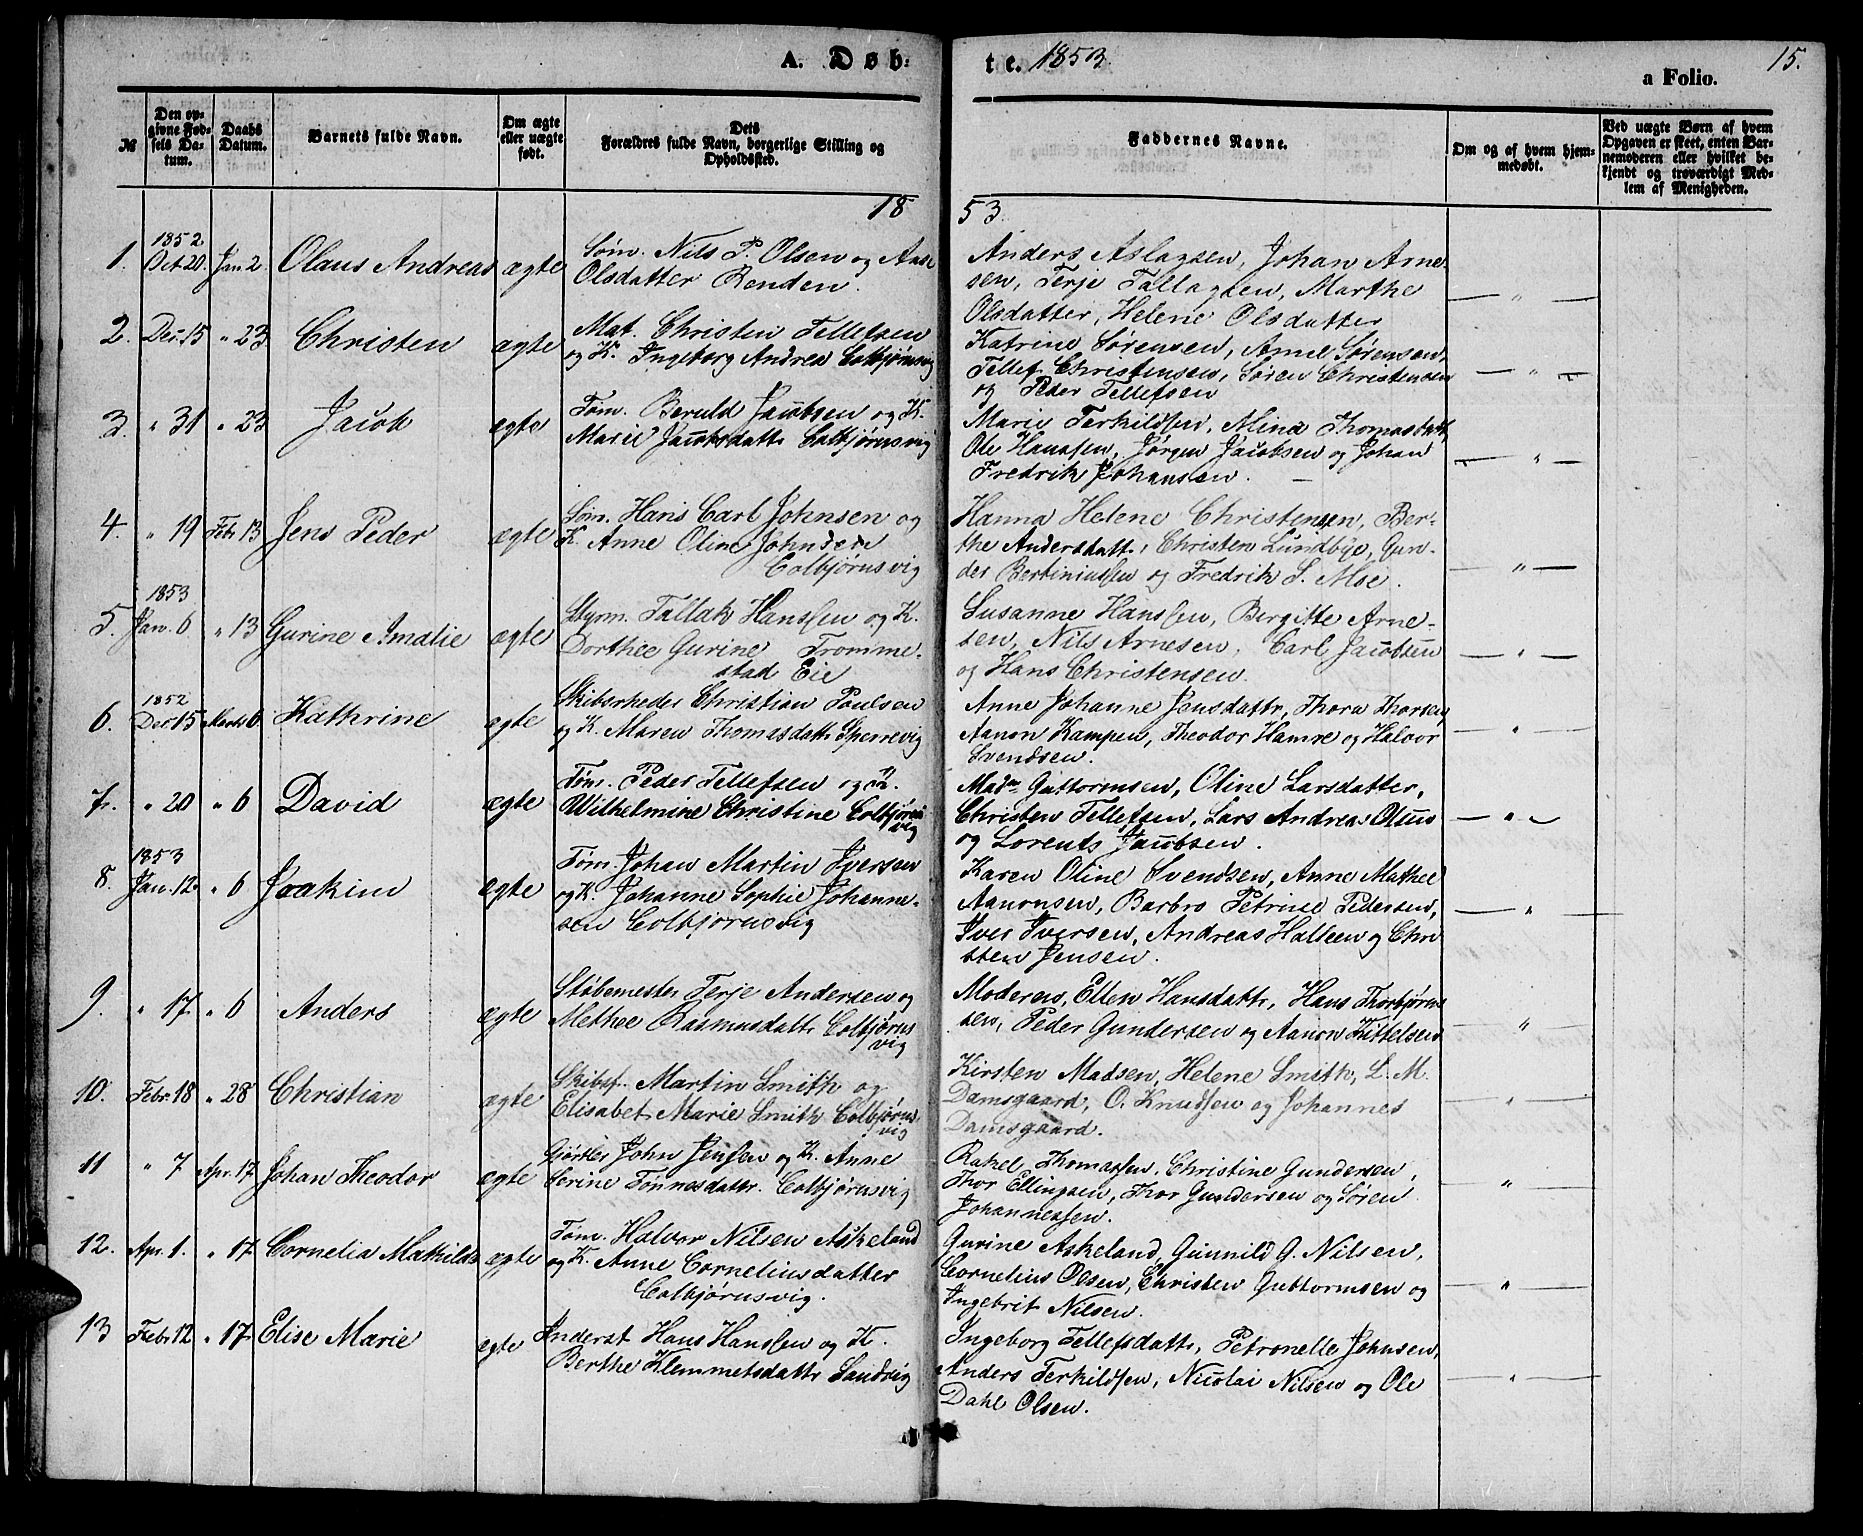 A. Døb:
te. 1853.
15.
a Folio.
№
Den op-
givne Fød-
sels Da-
tum.
Daabs
Datum.
Barnets fulde Navn.
Om ægte
eller uægte
født.
Dets
Forældres fulde Navn, borgerlige Stilling og
Opholdssted.
Faddernes Navne.
Om og af hvem hjem-
medøbt.
Ved uægte Børn af hvem
Opgaven er skeet, enten Bar-
nemoderen eller hvilket be-
kjendt og troværdigt Med-
lem af Menigheden.
18
53.
1.
1852
Oct 20.
Jan 2
Olaus Andreas
ægte
Søm. Nils P. Olsen og Aase
Olsdatter Renden.
Anders Aslagsen, Johan Arne-
sen, Terje Tallagsen, Marthe
Olsdatter, Helene Olsdatter
— " —
2.
Dec. 15
" 23
Christen
ægte
Mat. Christen Tellefsen
og K. Ingeborg Andrea Colbjørnsvig
Katrine Sørensen, Anne Sørensen,
Tellef Christensen, Søren Christensen
og Peder Tellefsen
— " —
3.
" 31
" 23
Jacob
ægte
Tøm. Beruld Jacobsen og K.
Marie Jacobsdattr Colbjørnsvig
Marie Terkildsen, Mina Thomasdattr,
Ole Hanssen, Jørgen Jacobsen og Johan
Fredrik Johansen. —
— " —
4.
" 19
Febr 13
Jens Peder
ægte
Søm. Hans Carl Johnsen og
K. Anne Oline Johnsen
Colbjørnsvig
Hanna Helene Christensen, Ber-
the Andersdattr, Christen Lundbye, Gun-
der Bertiniussen og Fredrik S. Moe.
— " —
5.
1853
Jan. 6
" 13
Gurine Amalie
ægte
Styrm. Tallak Hanssen og K.
Dorthee Gurine Tromme-
stad Eie
Susanne Hanssen, Bergitte Arne-
sen, Nils Arnesen, Carl Jacobsen
og Hans Christensen.
— " —
6.
1852
Dec 15
Marts 6
Kathrine
ægte
Skibsrheder Christian Poulsen
og K. Maren Thomasdattr Sperrevig
Anne Johanne Jensdattr, Thora Thorsen,
Aanon Kampen, Theodor Hamre og Halvor
Svendsen.
— " —
7.
" 20
" 6
David
ægte
Tøm. Peder Tellefsen og K.
Wilhelmine Christine Colbjørns
vig
Madm Guttormsen, Oline Larsdatter,
Christen Tellefsen, Lars Andreas Olsus
og Lorents Jacobsen.
— " —
8.
1853
Jan. 12
" 6
Joakim
ægte
Tøm. Johan Martin Iversen
og K. Johanne Sophie Johanne-
sen Colbjørnsvig
Karen Oline Svendsen, Anne Mathee
Aanonsen, Barbro Petrine Pedersen,
Iver Iversen, Andreas Halleen og Chri
sten Jensen.
— " —
9.
" 17
" 6
Anders
ægte
Støbemester Terje Andersen og
Methee Rasmusdattr Colbjørns
vig
Moderen, Ellen Hansdattr, Hans Thorbjørn
sen, Peder Gundersen og Aanon Kittelsen
— " —
10.
Febr. 18
" 28
Christian
ægte
Skibsf. Martin Smith og
Elisabet Marie Smith Colbjørns
vig
Kirsten Madsen, Helene Smith, L. M.
Damsgaard, O. Knudsen og Johannes
Damsgaard.
— " —
11
" 7
Apr. 17
Johan Theodor
ægte
Gjørtler John Jensen og K. Anne
Serine Tønnesdattr. Colbjørnsvig
Rakel Thomassen, Christine Gundersen,
Thor Ellingsen, Thor Gundersen og Søren
Johannessen.
— " —
12.
Apr. 1.
" 17
Cornelia Mathilde
ægte
Tøm. Halvor Nilsen Askeland
og K. Anne Corneliusdatter
Colbjørnsvig.
Gurine Askeland, Gunnild G. Nilsen,
Cornelius Olsen, Christen Guttormsen og
Ingebrit Nilsen.
— " —
13
Febr 12
" 17
Elise Marie
ægte
Inderst Hans Hanssen og K.
Berthe Klemmetsdattr Sandvig
Ingeborg Tellefsdattr, Petronelle Johnsen,
Anders Terkildsen, Nicolai Nilsen og Ole
Dahl Olsen.
— " —